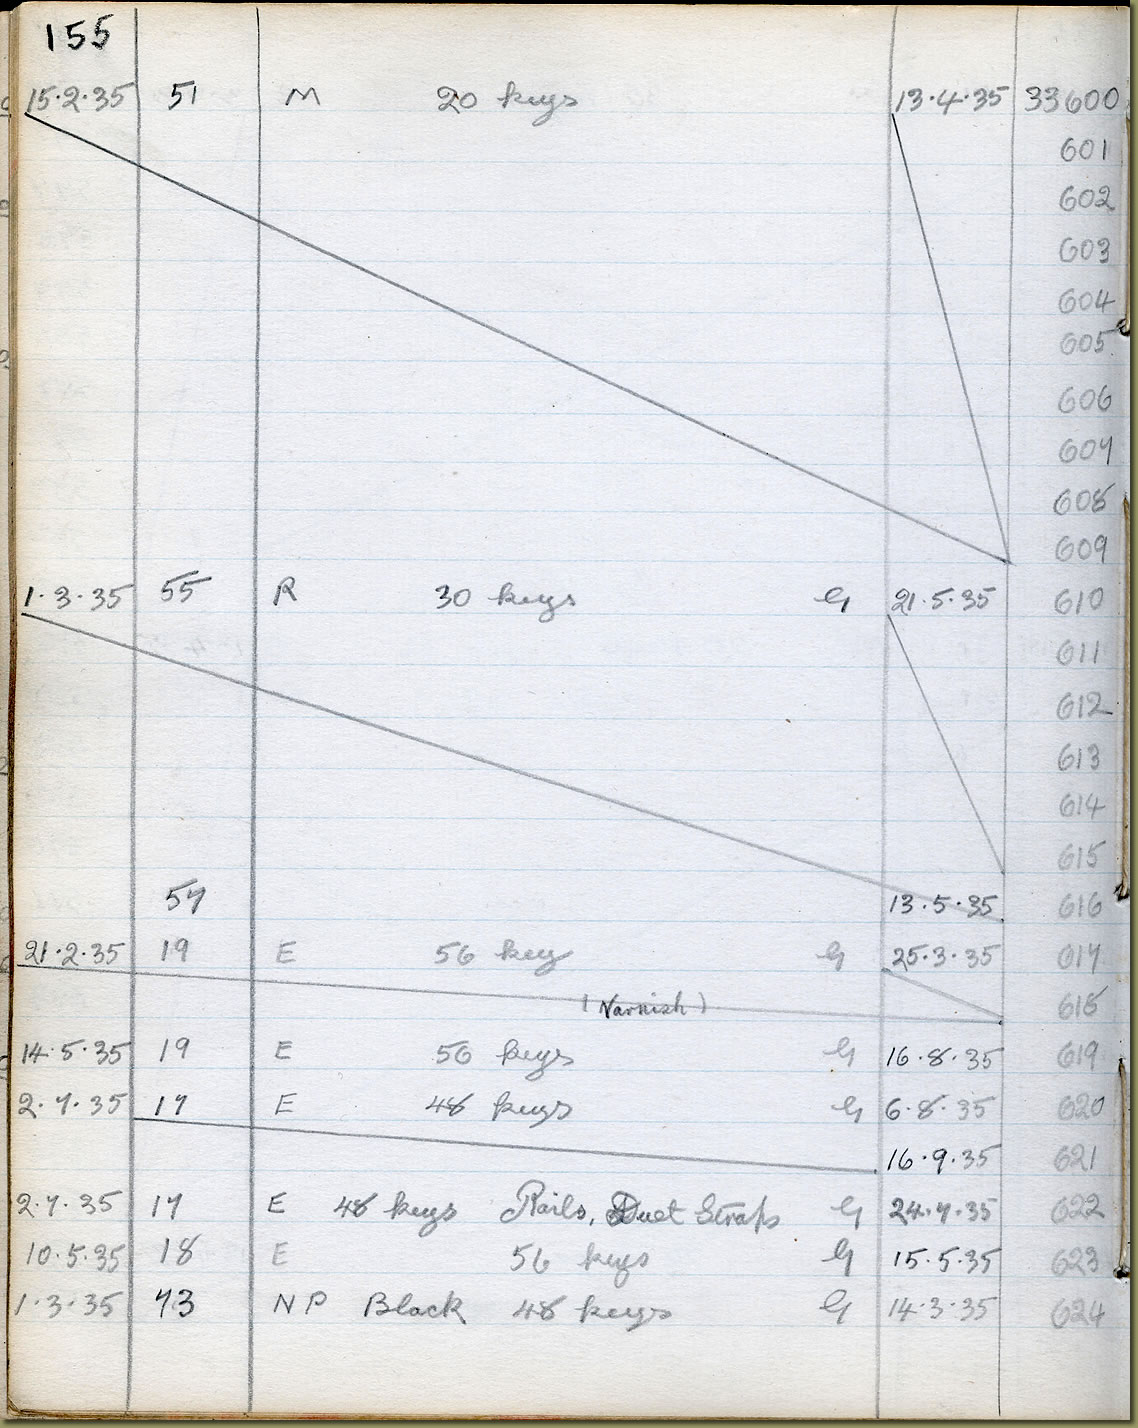 155
15·2·35 51 M 20 keys 13·4·35 33600
601
602
603
604
605
606
607
608
609
1·3·35 55 R 30 keys G 21·5·35 610
611
612
613
614
615
57 13·5·35 616
21·2·35 19 E 56 key G 25·3·35 617
(Varnish) 618
14·5·35 19 E 56 keys G 16·8·35 619
2·7·35 17 E 48 keys G 6·8·35 620
16·9·35 621
2·7·35 17 E 48 keys Rails, Duet Straps G 24·7·35 622
10·5·35 18 E 56 keys G 15·5·35 623
1·3·35 73 NP Black 48 keys G 14·3·35 624